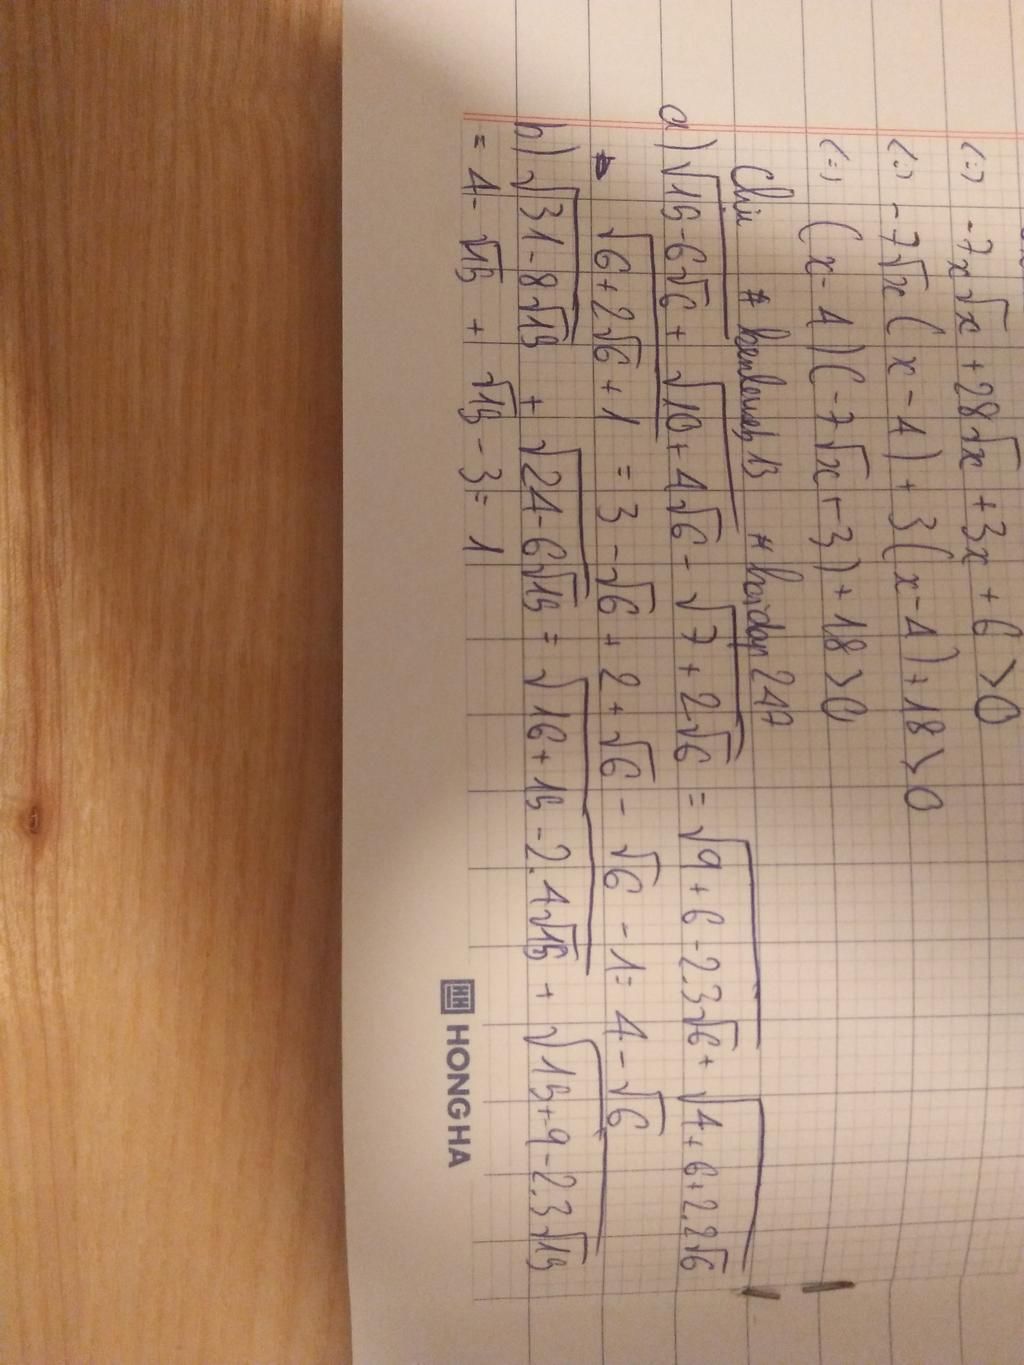 (=) -7x√x + 28√x + 3x + 6 > 0
(=) -7√x (x - 4) + 3(x - 4) + 18 > 0
(=) (x - 4)(-7√x + 3) + 18 > 0
a) √15-6√6 + √10+4√6 - √7+2√6 = √9+6-2.3√6 + √4+6+2.2√6
- √6+2√6+1 = 3 - √6 + 2 + √6 - √6 - 1 = 4 - √6
b) √31-8√15 + √24-6√15 = √16+15-2.4√15 + √15+9-2.3√15
= 4 - √15 + √15 - 3 = 1
HONG HA